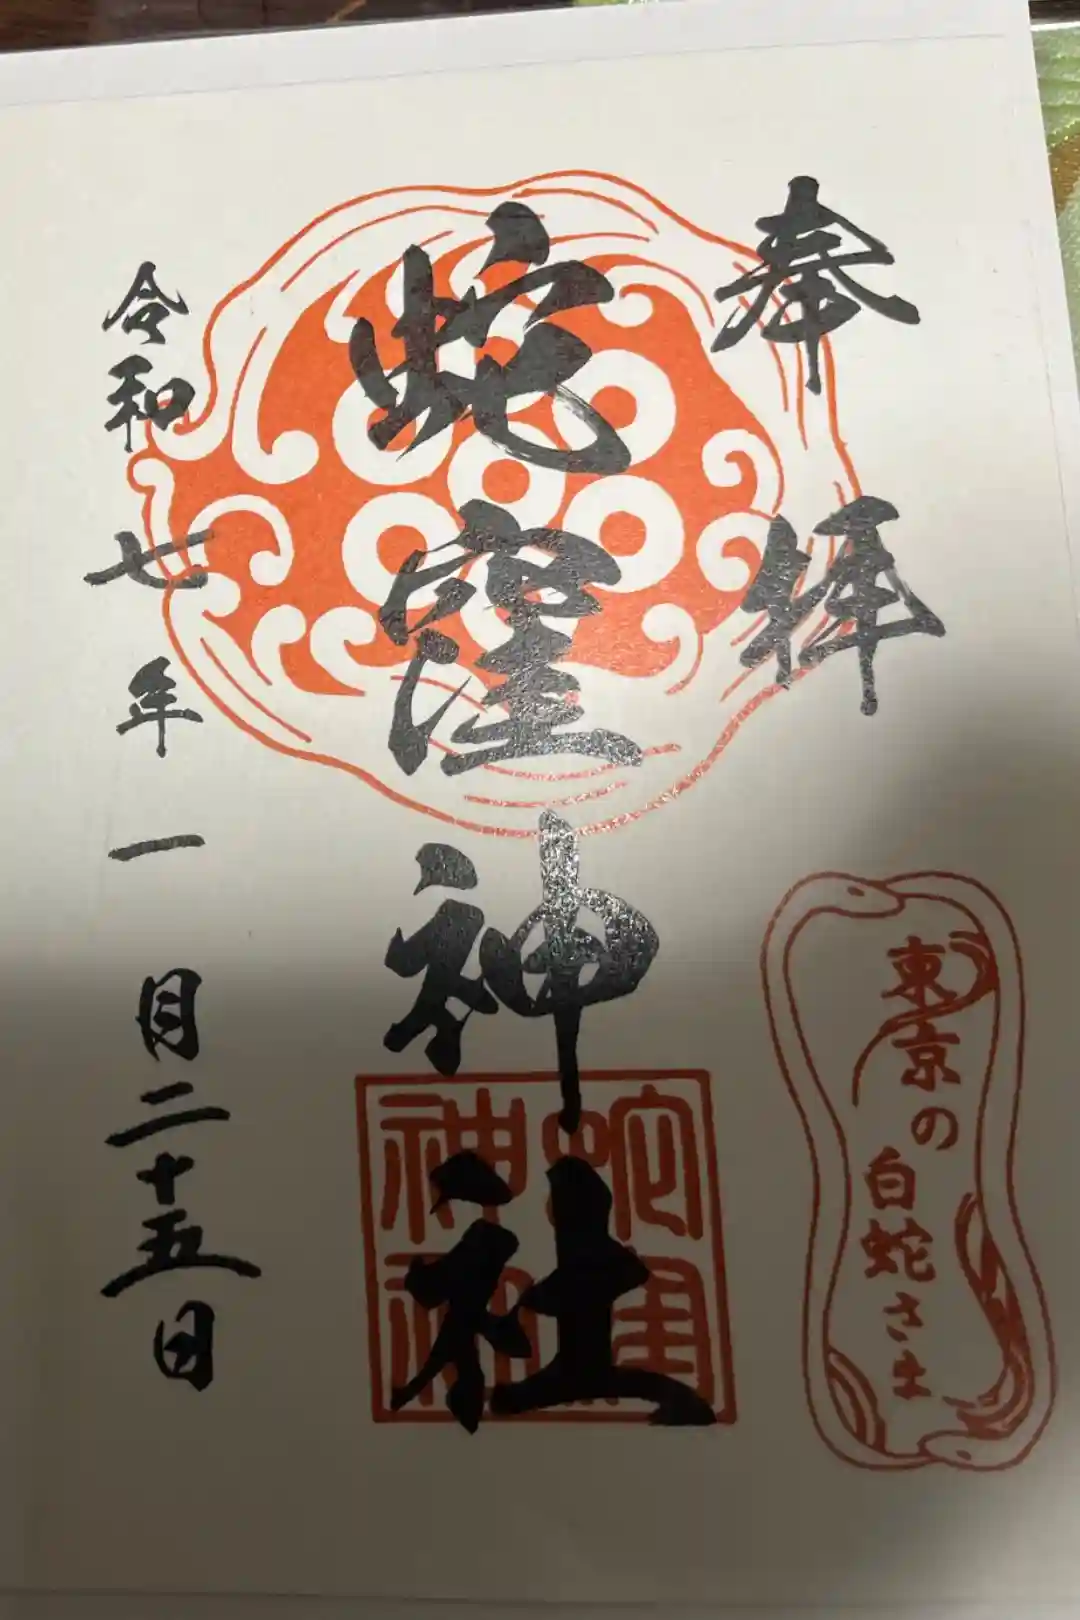 奉拝
東京の
白蛇さま
蛇窪神社
蛇窪
神社
令和七年一月二十五日